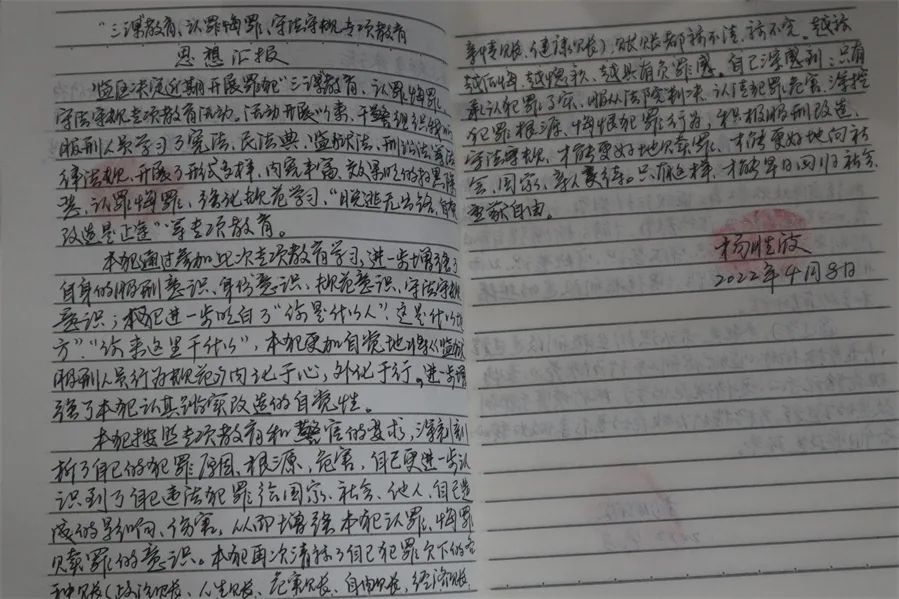 "三课教育、认罪悔罪、守法守规专项教育
思想汇报
监区决定近期开展罪犯"三课教育、认罪悔罪、
守法守规专项教育活动。活动开展以来,干警组织我们
服刑人员学习了宪法、民法典、监狱法、刑诉法等法
律法规,开展了形式多样、内容丰富、效果明显的扫黑除
恶、认罪悔罪、强化规范学习、"脱逃无出路,自觉
改造是正道"等专项教育。
本犯通过参加此次专项教育学习,进一步增强了
自身的服刑意识、身份意识、规范意识、守法守规
意识;本犯进一步明白了"你是什么人"、"这是什么地
方"、"你来这里干什么",本犯更加自觉地将《监狱
服刑人员行为规范》内化于心,外化于行。进一步增
强了本犯认真踏实改造的自觉性。
本犯按照专项教育和警官的要求,深刻剖
析了自己的犯罪原因、根源、危害,自己更进一步认
识到了自己违法犯罪给国家、社会、他人、自己造
成的影响、伤害,从而增强本犯认罪、悔罪
赎罪的意识。本犯再次清算了自己犯罪欠下的各
种欠账(政治账、人生账、危害账、自由账、经济账
亲情账、健康账),账账都算不清、算不完。越算
越后悔、越愧疚、越具有负罪感。自己深感到:只有
承认犯罪事实、服从法院判决、认清犯罪危害、深挖
犯罪根源、悔恨犯罪行为,积极服刑改造、
守法守规,才能更好地赎罪,才能更好地向社
会、国家、亲人交待。只有这样,才能早日回归社会
重获自由。
2022年4月8日